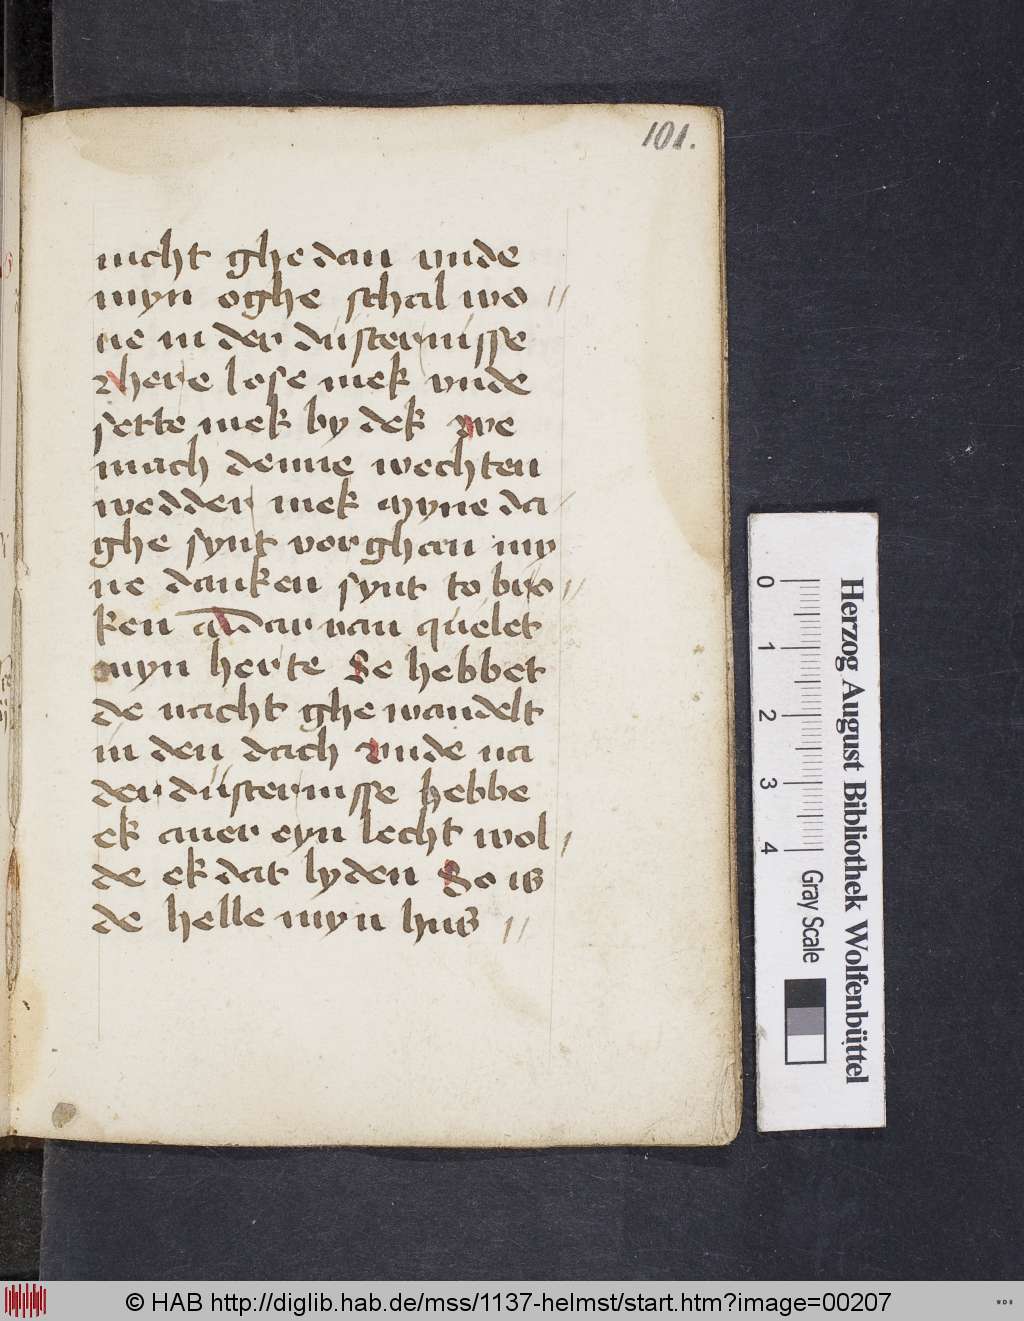 101.
nicht ghe dan vnde
myn oghe schal wo //
ne in der dusternisse
here lose mek vnde
sette mek by dek we
mach denne vechten
wedder mek Myne da
ghe synt vorghan my
ne danken synt to bro //
ken dar van quelet
myn herte Se hebbet
de nacht ghe wandelt
in den dach vnde na
der dusternisse hebbe
ek auer eyn lecht wol /
de ek dat lyden So is
de helle myn hus //
Herzog August Bibliothek Wolfenbüttel
0 1 2 3 4 Gray Scale
© HAB http://diglib.hab.de/mss/1137-helmst/start.htm?image=00207